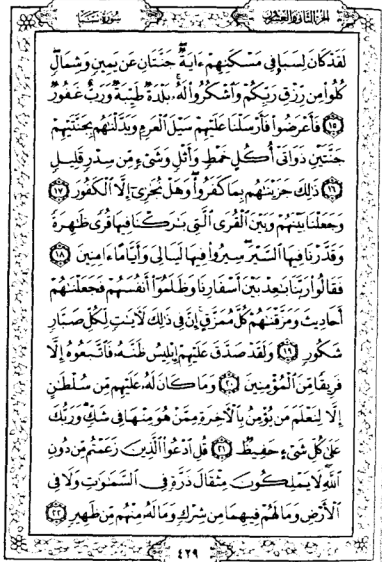 الجزء الثاني والعشرون سورة سبإ
لَقَدْ كَانَ لِسَبَإٍ فِى مَسْكَنِهِمْ ءَايَةٌ جَنَّتَانِ عَن يَمِينٍ وَشِمَالٍ
كُلُوا۟ مِن رِّزْقِ رَبِّكُمْ وَٱشْكُرُوا۟ لَهُۥ بَلْدَةٌ طَيِّبَةٌ وَرَبٌّ غَفُورٌ
١٥ فَأَعْرَضُوا۟ فَأَرْسَلْنَا عَلَيْهِمْ سَيْلَ ٱلْعَرِمِ وَبَدَّلْنَٰهُم بِجَنَّتَيْهِمْ
جَنَّتَيْنِ ذَوَاتَىْ أُكُلٍ خَمْطٍ وَأَثْلٍ وَشَىْءٍ مِّن سِدْرٍ قَلِيلٍ
١٦ ذَٰلِكَ جَزَيْنَٰهُم بِمَا كَفَرُوا۟ وَهَلْ نُجَٰزِىٓ إِلَّا ٱلْكَفُورَ ١٧
وَجَعَلْنَا بَيْنَهُمْ وَبَيْنَ ٱلْقُرَى ٱلَّتِى بَٰرَكْنَا فِيهَا قُرًى ظَٰهِرَةً
وَقَدَّرْنَا فِيهَا ٱلسَّيْرَ سِيرُوا۟ فِيهَا لَيَالِىَ وَأَيَّامًا ءَامِنِينَ ١٨
فَقَالُوا۟ رَبَّنَا بَٰعِدْ بَيْنَ أَسْفَارِنَا وَظَلَمُوٓا۟ أَنفُسَهُمْ فَجَعَلْنَٰهُمْ
أَحَادِيثَ وَمَزَّقْنَٰهُمْ كُلَّ مُمَزَّقٍ إِنَّ فِى ذَٰلِكَ لَءَايَٰتٍ لِّكُلِّ صَبَّارٍ
شَكُورٍ ١٩ وَلَقَدْ صَدَّقَ عَلَيْهِمْ إِبْلِيسُ ظَنَّهُۥ فَٱتَّبَعُوهُ إِلَّا
فَرِيقًا مِّنَ ٱلْمُؤْمِنِينَ ٢٠ وَمَا كَانَ لَهُۥ عَلَيْهِم مِّن سُلْطَٰنٍ
إِلَّا لِنَعْلَمَ مَن يُؤْمِنُ بِٱلْءَاخِرَةِ مِمَّنْ هُوَ مِنْهَا فِى شَكٍّ وَرَبُّكَ
عَلَىٰ كُلِّ شَىْءٍ حَفِيظٌ ٢١ قُلِ ٱدْعُوا۟ ٱلَّذِينَ زَعَمْتُم مِّن دُونِ
ٱللَّهِ لَا يَمْلِكُونَ مِثْقَالَ ذَرَّةٍ فِى ٱلسَّمَٰوَٰتِ وَلَا فِى
ٱلْأَرْضِ وَمَا لَهُمْ فِيهِمَا مِن شِرْكٍ وَمَا لَهُۥ مِنْهُم مِّن ظَهِيرٍ ٢٢
٤٢٩